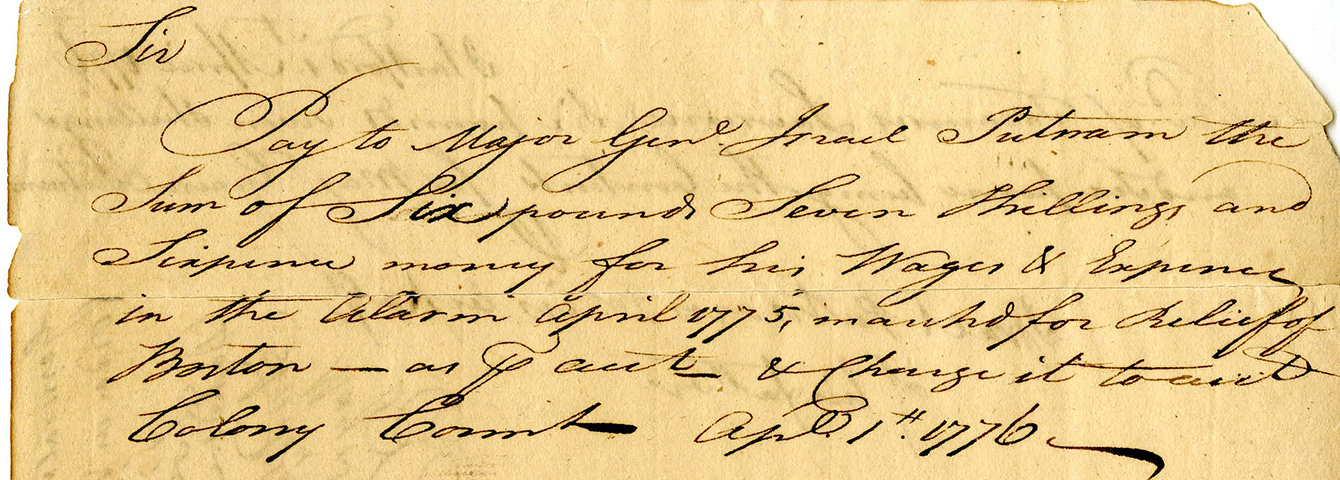 Sir
Pay to Major Genl. Israel Putnam the
Sum of Six pounds Seven Shillings and
Sixpence money for his Wages & Expences
in the Alarm April 1775, marchd for Relief of
Boston — as ⅌ acct & Charge it to acct
Colony Connt Apl. 1st. 1776